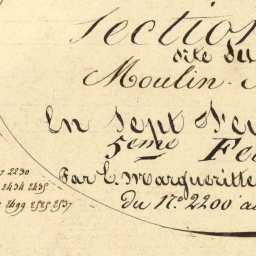 Section
dite du
Moulin
En Sept Feu
5eme Fe
Par E. Margueritte
du No. 2200 a
2230
2434 2435
2499 2525 2537